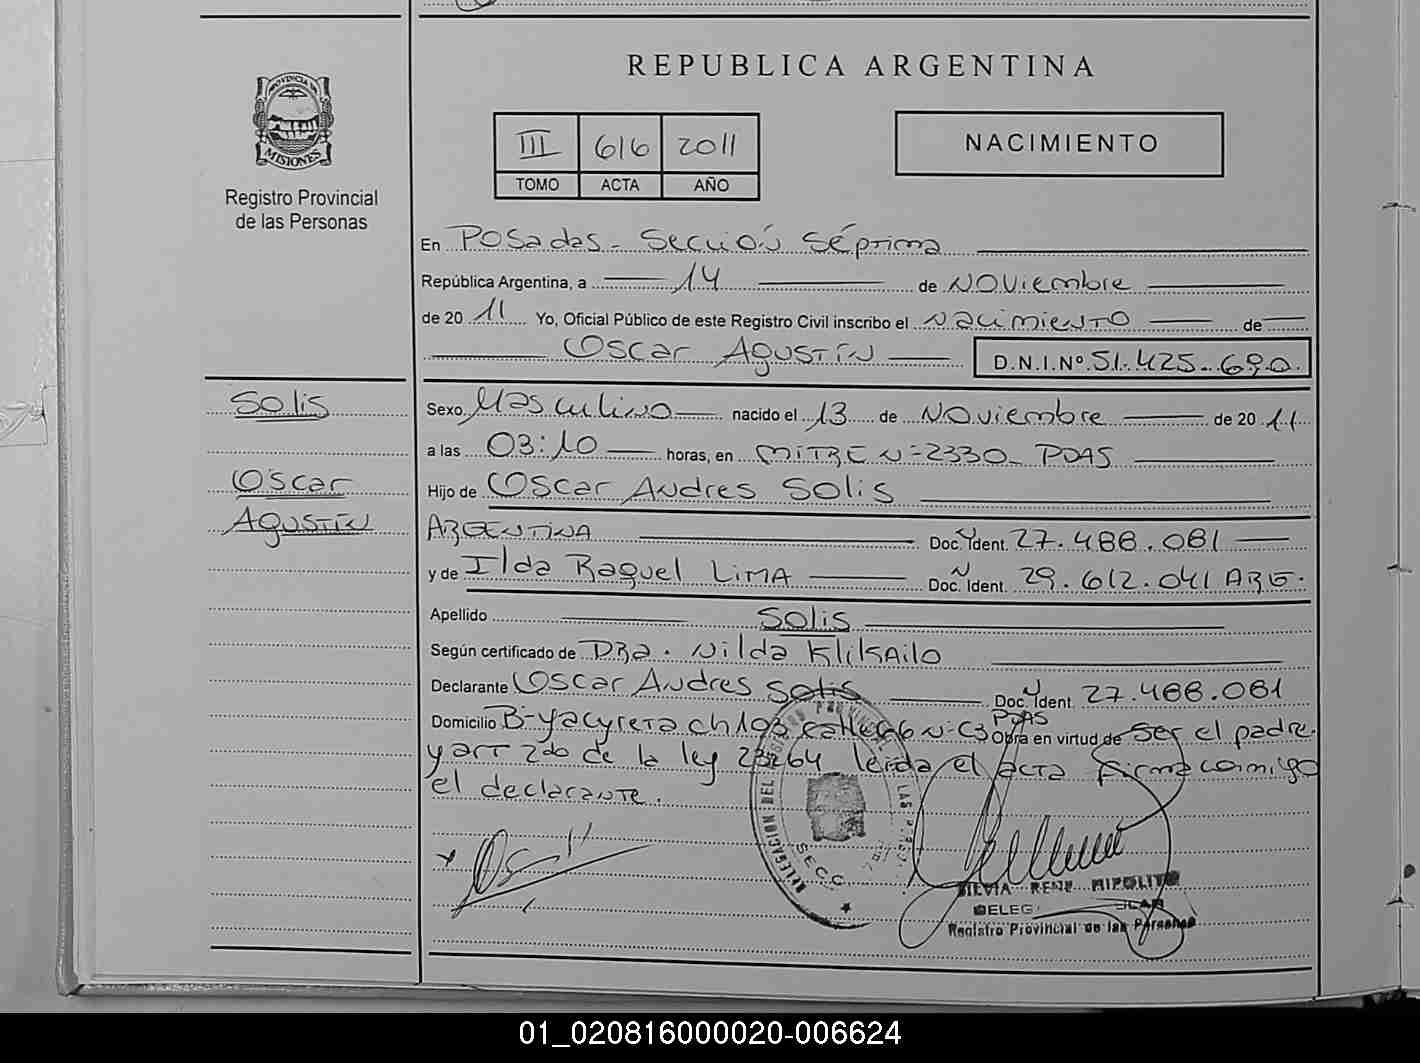 REPUBLICA ARGENTINA
PROVINCIA DE
MISIONES
Registro Provincial
de las Personas
III 616 2011
TOMO ACTA AÑO
NACIMIENTO
En Posadas - Sección Séptima
República Argentina, a 14 de Noviembre
de 20 11 Yo, Oficial Público de este Registro Civil inscribo el Nacimiento de
Oscar Agustín D.N.I.Nº 51.425.690
Solis
Oscar
Agustín
Sexo Masculino nacido el 13 de Noviembre de 20 11
a las 03:10 horas, en MITRE N-2330_ PDAS
Hijo de Oscar Andres Solis
ARGENTINA Doc. Ident. 27.488.081
y de Ilda Raquel LIMA Doc. Ident. 29.612.041 ARG.
Apellido Solis
Según certificado de DRA. Nilda Klikailo
Declarante Oscar Andres Solis Doc. Ident. 27.488.081
Domicilio B-Yacyreta ch 193 calle 66 N-C3 PDAS Obra en virtud de ser el padre
y art 2do de la ley 23264 leida el acta firma conmigo
el declarante.
DELEGACION DEL REGISTRO PROVINCIAL DE LAS
SECC
SILVIA RENE HIPOLITO
DELEG
Registro Provincial de las Personas
01_020816000020-006624